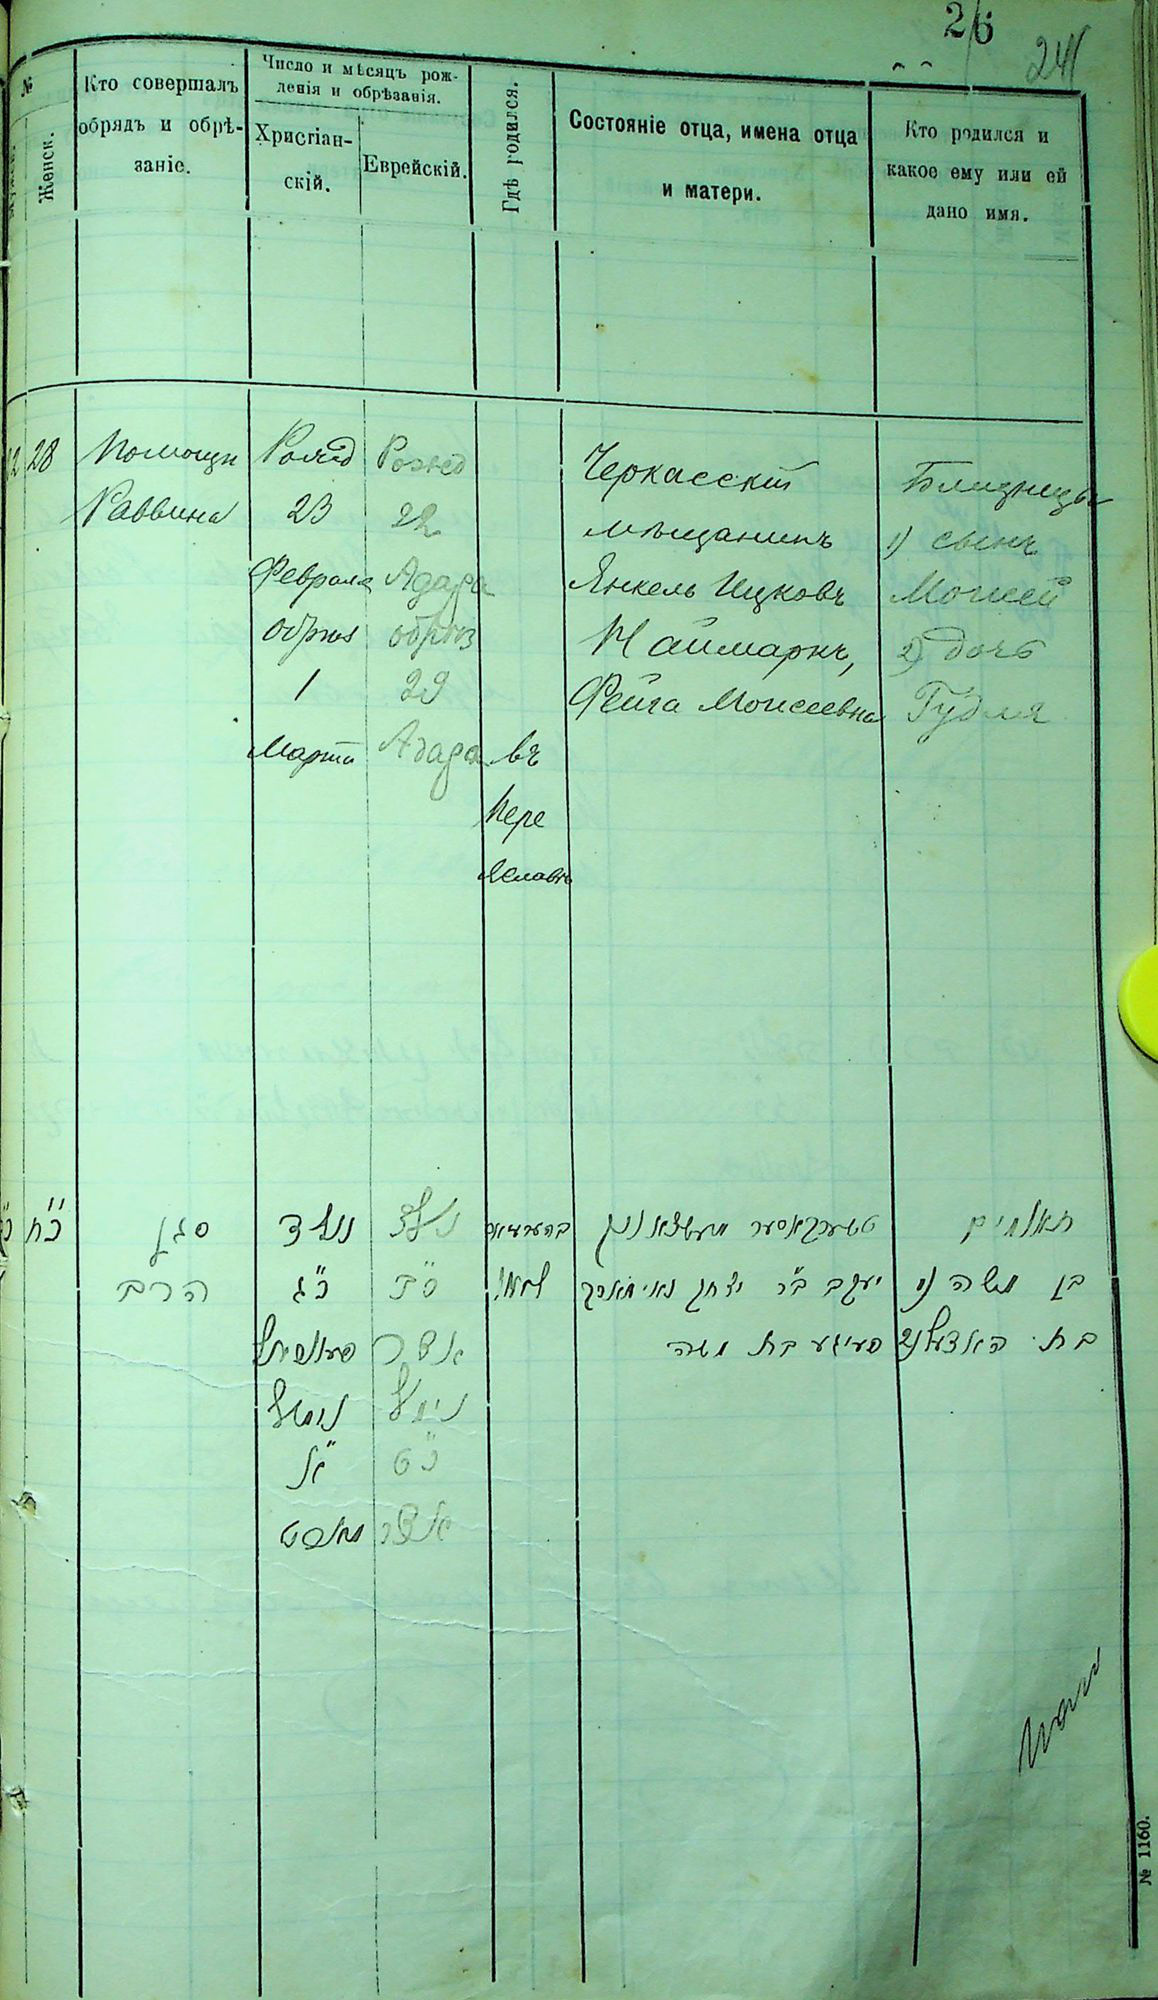 26
241
№
Женск.
Кто совершалъ
обрядъ и обрѣ-
заніе.
Число и мѣсяцъ рож-
денія и обрѣзанія.
Христіан-
скій.
Еврейскій.
Гдѣ родился.
Состояніе отца, имена отца
и матери.
Кто родился и
какое ему или ей
дано имя.
28
Помощн
Раввина
23
Февраля
1
Марта
22
Адара
29
Адара
въ
Пере
яславѣ
Черкасскій
мѣщанинъ
Янкель Ицковъ
Наймаркъ,
Фейга Моисеевна
Близнецы
1) сынъ
Моисей
2) дочь
Гудля
כ"ח
סגן
הרב
נולד
כ"ג
נימול
א"
מארט
נולד
אדר
נימול
כ"ט
אדר
טשערקאסער
יעקב ב"ר יצחק נאימארק
פעיגע בת משה
תאומים
בן משה
בת
№ 1160.